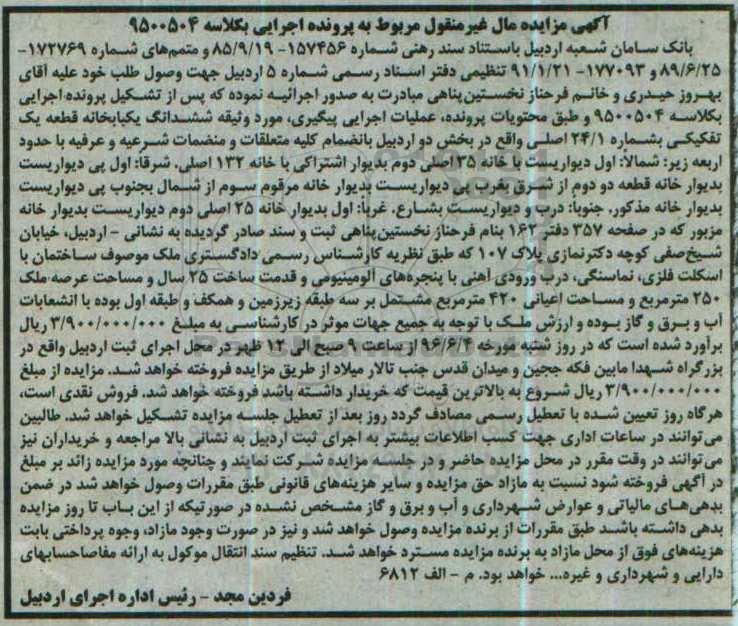 آگهی مزایده مال غیرمنقول مربوط به پرونده اجرایی بکلاسه ۹۵۰۰۵۰۴
بانک سامان شعبه اردبیل باستناد سند رهنی شماره ۱۵۷۴۵۶- ۸۵/۹/۱۹ و متمم‌های شماره ۱۷۲۷۶۹-
۸۹/۶/۲۵ و ۱۷۷۰۹۳- ۹۱/۱/۲۱ تنظیمی دفتر اسناد رسمی شماره ۵ اردبیل جهت وصول طلب خود علیه آقای
بهروز حیدری و خانم فرحناز نخستین‌پناهی مبادرت به صدور اجرائیه نموده که پس از تشکیل پرونده اجرایی
بکلاسه ۹۵۰۰۵۰۴ و طبق محتویات پرونده، عملیات اجرایی پیگیری، مورد وثیقه ششدانگ یکبابخانه قطعه یک
تفکیکی بشماره ۲۴/۱ اصلی واقع در بخش دو اردبیل بانضمام کلیه متعلقات و منضمات شرعیه و عرفیه با حدود
اربعه زیر: شمالا: اول دیواریست با خانه ۳۵ اصلی دوم بدیوار اشتراکی با خانه ۱۳۲ اصلی. شرقا: اول پی دیواریست
بدیوار خانه قطعه دو دوم از شرق بغرب پی دیواریست بدیوار خانه مرقوم سوم از شمال بجنوب پی دیواریست
بدیوار خانه مذکور. جنوبا: درب و دیواریست بشارع. غربا: اول بدیوار خانه ۲۵ اصلی دوم دیواریست بدیوار خانه
مزبور که در صفحه ۳۵۷ دفتر ۱۶۲ بنام فرحناز نخستین‌پناهی ثبت و سند صادر گردیده به نشانی - اردبیل، خیابان
شیخ‌صفی کوچه دکترنمازی پلاک ۱۰۷ که طبق نظریه کارشناس رسمی دادگستری ملک موصوف ساختمان با
اسکلت فلزی، نماسنگی، درب ورودی آهنی با پنجره‌های آلومینیومی و قدمت ساخت ۲۵ سال و مساحت عرصه ملک
۲۵۰ مترمربع و مساحت اعیانی ۴۲۰ مترمربع مشتمل بر سه طبقه زیرزمین و همکف و طبقه اول بوده با انشعابات
آب و برق و گاز بوده و ارزش ملک با توجه به جمیع جهات موثر در کارشناسی به مبلغ ۳/۹۰۰/۰۰۰/۰۰۰ ریال
برآورد شده است که در روز شنبه مورخه ۹۶/۶/۴ از ساعت ۹ صبح الی ۱۲ ظهر در محل اجرای ثبت اردبیل واقع در
بزرگراه شهدا مابین فکه ججین و میدان قدس جنب تالار میلاد از طریق مزایده فروخته خواهد شد. مزایده از مبلغ
۳/۹۰۰/۰۰۰/۰۰۰ ریال شروع به بالاترین قیمت که خریدار داشته باشد فروخته خواهد شد. فروش نقدی است،
هرگاه روز تعیین شده با تعطیل رسمی مصادف گردد روز بعد از تعطیل جلسه مزایده تشکیل خواهد شد. طالبین
می‌توانند در ساعات اداری جهت کسب اطلاعات بیشتر به اجرای ثبت اردبیل به نشانی بالا مراجعه و خریداران نیز
می‌توانند در وقت مقرر در محل مزایده حاضر و در جلسه مزایده شرکت نمایند و چنانچه مورد مزایده زائد بر مبلغ
در آگهی فروخته شود نسبت به مازاد حق مزایده و سایر هزینه‌های قانونی طبق مقررات وصول خواهد شد در ضمن
بدهی‌های مالیاتی و عوارض شهرداری و آب و برق و گاز مشخص نشده در صورتیکه از این باب تا روز مزایده
بدهی داشته باشد طبق مقررات از برنده مزایده وصول خواهد شد و نیز در صورت وجود مازاد، وجوه پرداختی بابت
هزینه‌های فوق از محل مازاد به برنده مزایده مسترد خواهد شد. تنظیم سند انتقال موکول به ارائه مفاصاحسابهای
دارایی و شهرداری و غیره... خواهد بود. م - الف ۶۸۱۲
فردین مجد - رئیس اداره اجرای اردبیل